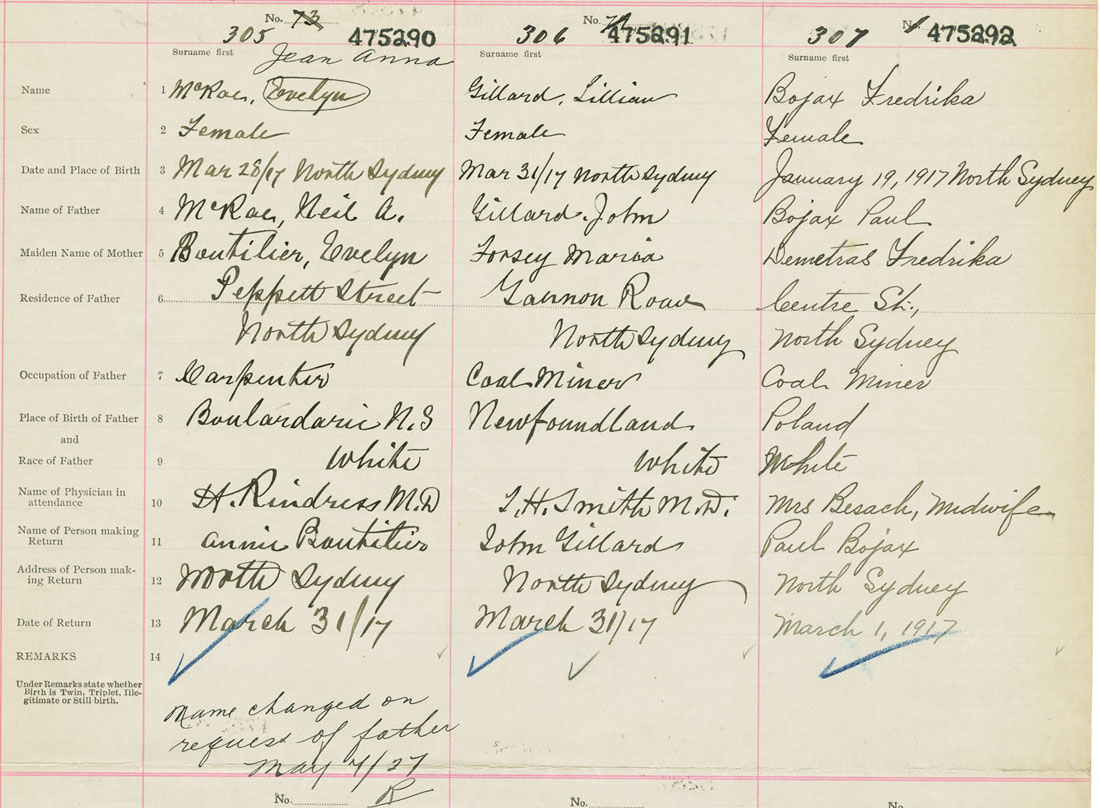 No. 73 No. 74 No.
305 475290 306 475291 307 475292
Surname first Jean Anna Surname first Surname first
Name 1 McRae, Evelyn Gillard, Lillian Bojax Fredrika
Sex 2 Female Female Female
Date and Place of Birth 3 Mar 28/17 North Sydney Mar 31/17 North Sydney January 19, 1917 North Sydney
Name of Father 4 McRae, Neil A. Gillard, John Bojax Paul
Maiden Name of Mother 5 Boutilier, Evelyn Forsey Maria Demetras Fredrika
Residence of Father 6 Peppett Street Gannon Road Centre St.,
North Sydney North Sydney North Sydney
Occupation of Father 7 Carpenter Coal Miner Coal Miner
Place of Birth of Father 8 Boulardarie N.S Newfoundland Poland
and
Race of Father 9 White White White
Name of Physician in
attendance 10 H. Rindress M.D T.H. Smith M.D. Mrs Besach, Midwife
Name of Person making
Return 11 Annie Boutilier John Gillard Paul Bojax
Address of Person mak-
ing Return 12 North Sydney North Sydney North Sydney
Date of Return 13 March 31/17 March 31/17 March 1, 1917
REMARKS 14
Under Remarks state whether
Birth is Twin, Triplet, Ille-
gitimate or Still birth.
Name changed on
request of father
May 7/27
R
No. No. No.